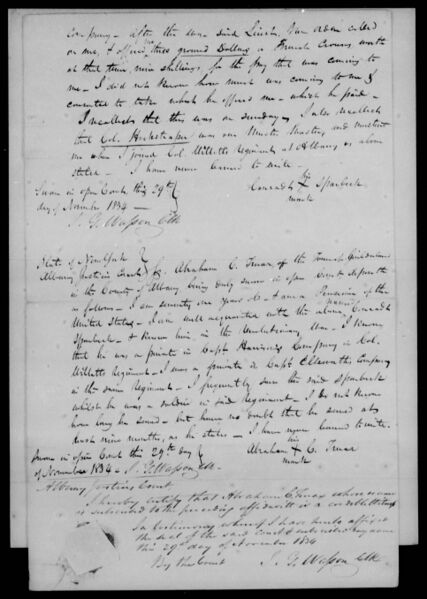 Company – after the war – said Lieut. Van called
on me, & offered three ground Dollars a French Crowns worth
at that time nine shillings, for the pay that was coming to
me – I did not know how much was coming to me &
consented to take what he offered me – which he paid –
I recollect that this was on Sunday – I also recollect
that Col. was our Muster Master, and mustered
me when I joined Col. Willetts Regiment at Albany as above
stated – I have never learned to write –
Sworn in open Court this 29th
day of November 1834 –
J. G. Wasson Clk
his
Conradt X Sparbeck
mark
State of New York
Albany Justices Court ss. Abraham C. Truax, of the Town of
in the County of Albany being duly sworn in open Court deposeth
as follows – I am seventy one years & am a Pensioner of the
United States – I am well acquainted with the above named Conradt
Sparbeck – & knew him in the Revolutionary War – I know
that he was a private in Capt Harrisons Company in Col.
Willetts Regiment – I was a private in Capt. Elsworths Company
in the same Regiment – I frequently saw the said Sparbeck
whilst he was a soldier in said Regiment – I do not know
how long he served – but have no doubt that he served at
least nine months, as he states – I have never learned to write.
Sworn in open Court this 29th day
of November 1834 – J. G. Wasson Clk.
his
Abraham X C. Truax
mark
Albany Justices Court
I hereby certify that Abraham C. Truax whose name
is subscribed to the preceding affidavit is a credible Witness
In testimony whereof I have hereto affixed
the seal of the said Court & subscribed my name
this 29th day of November 1834
By the Court J. G. Wasson Clk